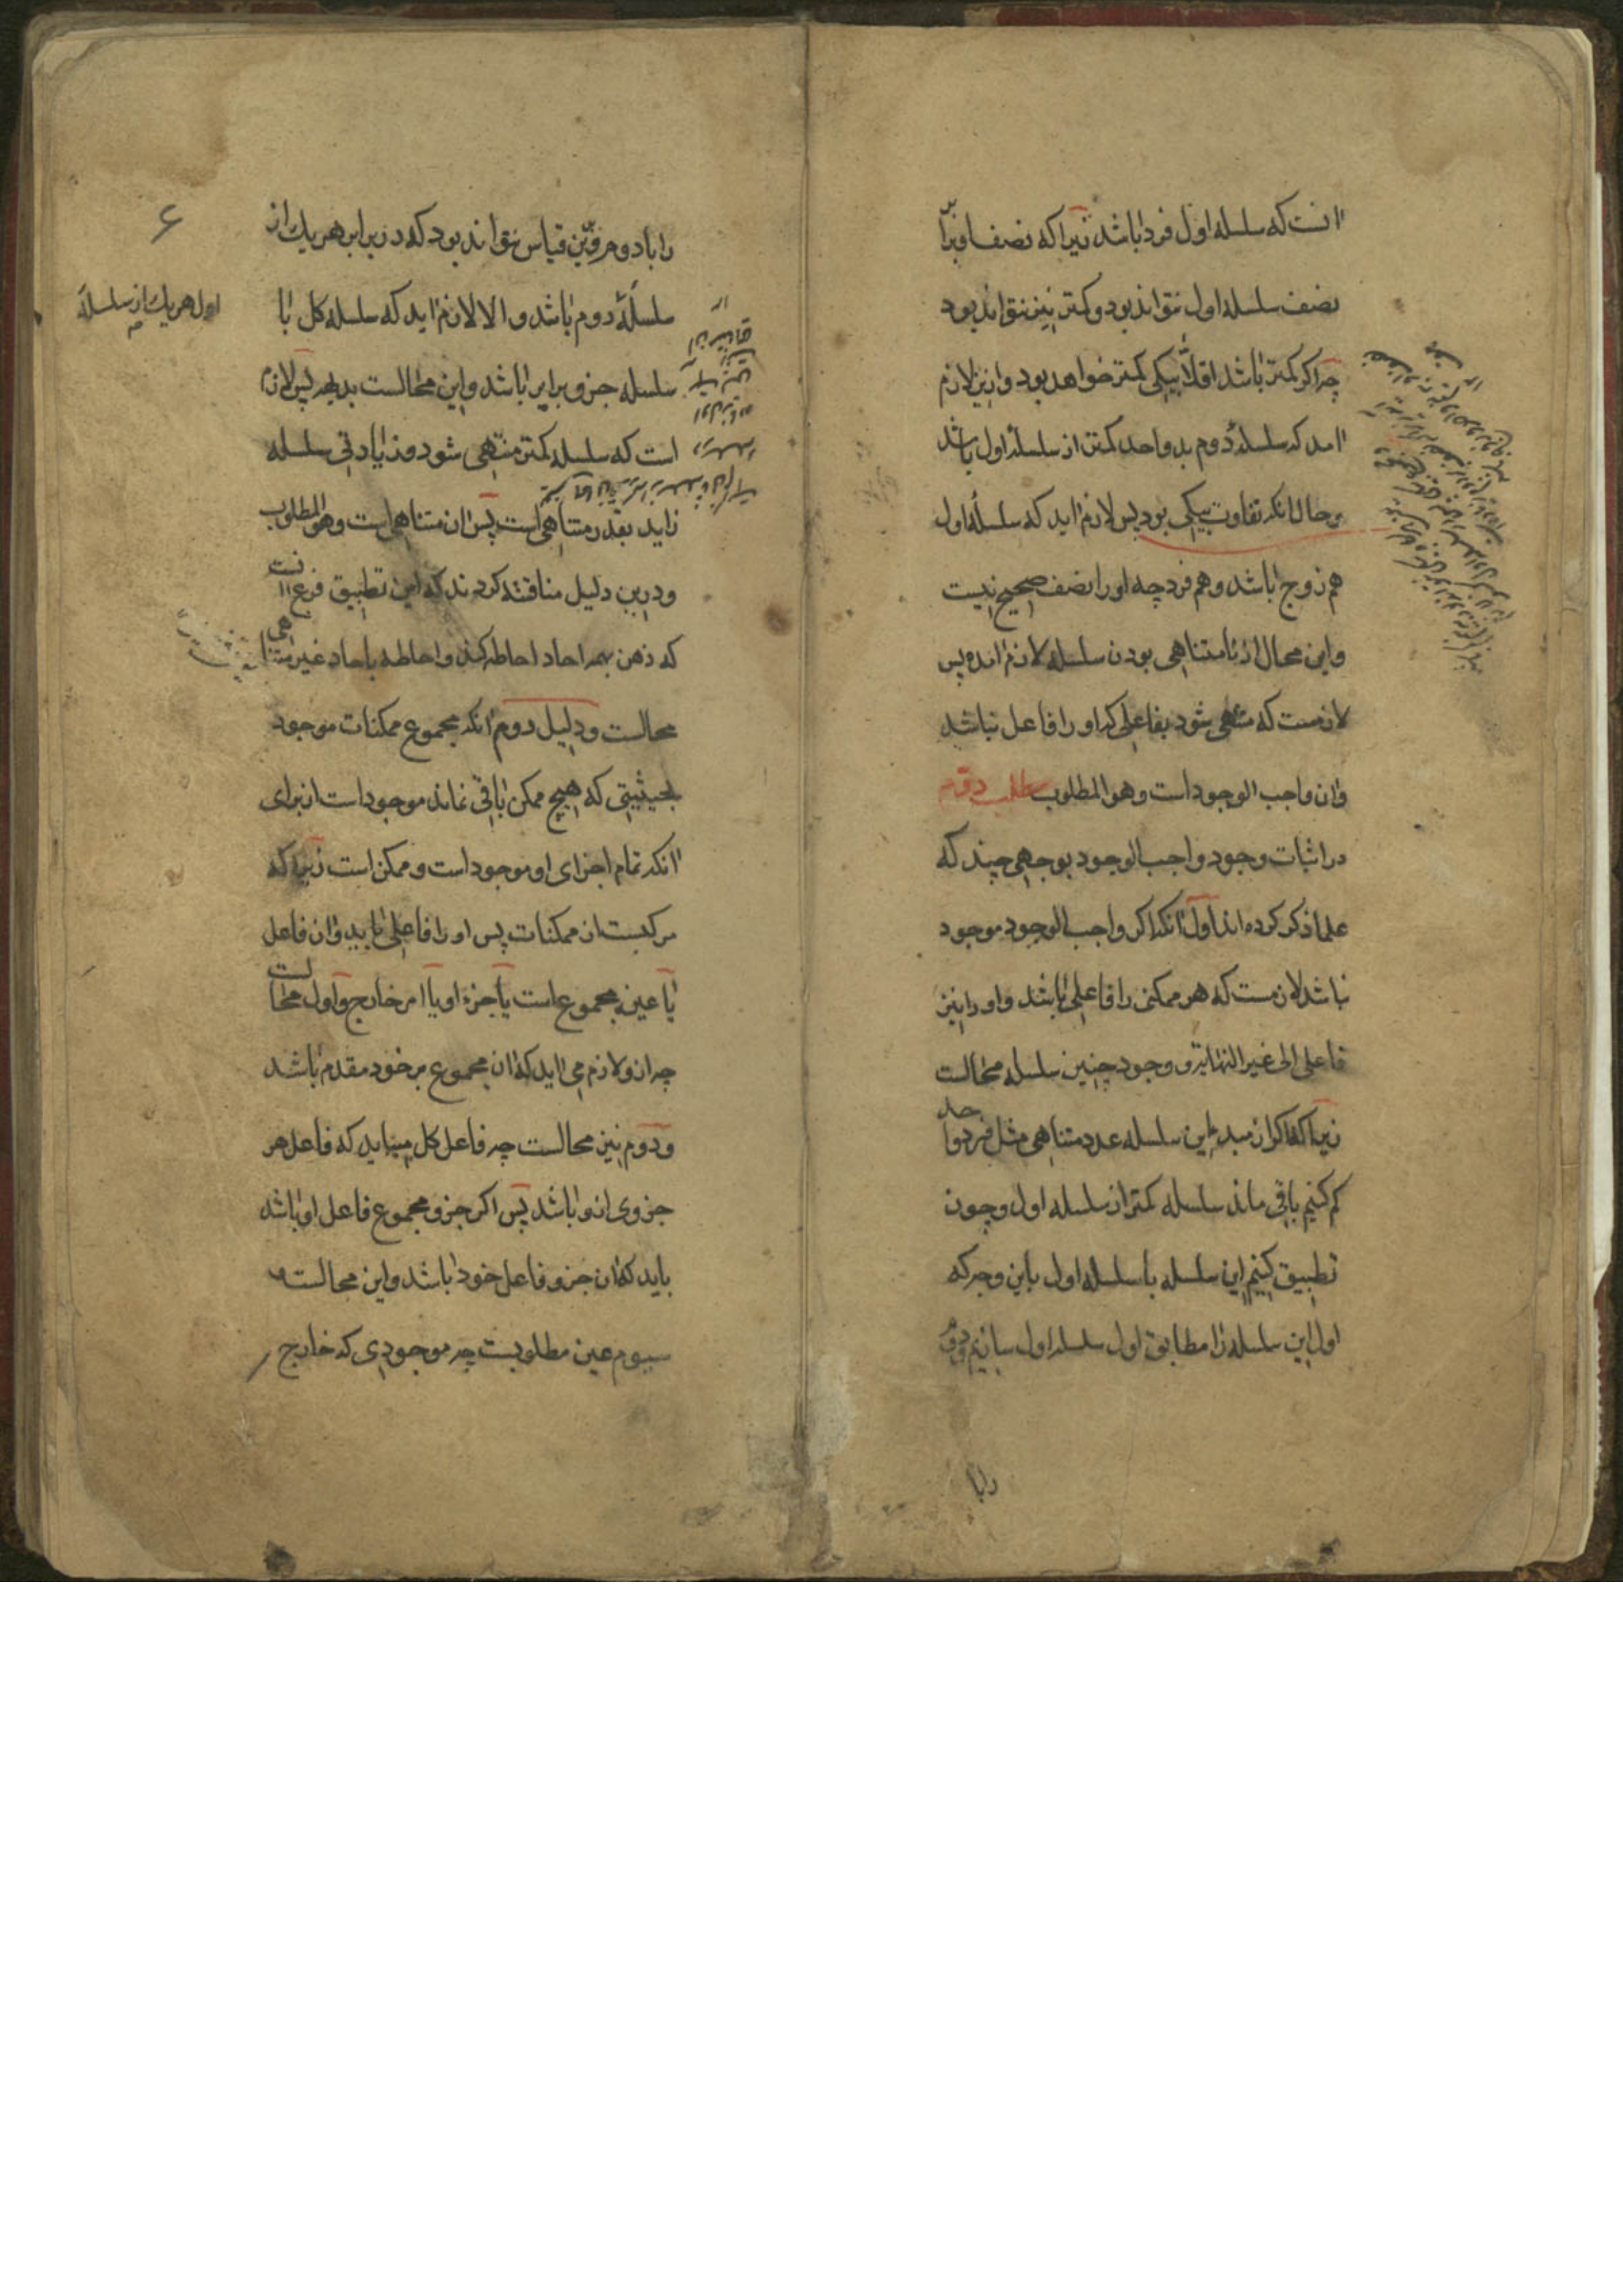 انست که سلسله اول فرد باشد زیرا که نصف او برابر
نصف سلسله اول نتواند بود و کمتر نیز نتواند بود
چه اگر کمتر باشد اقلاً بیکی کمتر خواهد بود و ازین لازم
امد که سلسلهٔ دوم بد واحد کمتر از سلسلهٔ اول باشد
و حال انکه تفاوت بیکی بود پس لازم اید که سلسلهٔ اول
هم زوج باشد و هم فرد چه او را نصف صحیح نیست
و این محال از نامتناهی بودن سلسله لازم امده پس
لازمست که منتهی شود بفاعلی که او را فاعل نباشد
و ان واجب الوجود است وهو المطلوب مطلب دوم
در اثبات وجود واجب الوجود بوجهی چند که
علما ذکر کرده اند اول انکه اگر واجب الوجود موجود
نباشد لازمست که هر ممکنی را فاعلی باشد و او را نیز
فاعلی الی غیر النهایة و وجود چنین سلسله محالست
زیرا که اگر از مبدء این سلسله عدد متناهی مثل فرد واحد
کم کنیم باقی ماند سلسله کمتر از سلسله اول و چون
تطبیق کنیم این سلسله با سلسله اول باین وجه که
اول این سلسله را مطابق اول سلسله اول سازیم و دوم
را با
۶
را با دوم و برین قیاس نتواند بود که در برابر هر یک از
سلسلهٔ دوم باشد و الا لازم اید که سلسله کل با
اول هر یک از سلسلهٔ
سلسله جزو برابر باشد و این محالست بدیهه پس لازم
است که سلسله کمتر منتهی شود و زیادتی سلسله
زاید بقدر متناهی است پس ان متناهی است وهو المطلوب
و درین دلیل مناقشه کردند که این تطبیق فرع انست
که ذهن بهمه احاد احاطه کند و احاطه باحاد غیر متناهی
محالست و دلیل دوم انکه مجموع ممکنات موجود
بحیثیتی که هیچ ممکن باقی نماند موجود است از برای
انکه تمام اجزای او موجود است و ممکن است زیرا که
مرکبست از ممکنات پس او را فاعلی باید و ان فاعل
یا عین مجموع است یا جزء او یا امر خارج و اول محالست
چه از و لازم می اید که ان مجموع بر خود مقدم باشد
و دوم نیز محالست چه فاعل کل میباید که فاعل هر
جزوی از و باشد پس اگر جزو مجموع فاعل او باشد
باید که ان جزو فاعل خود باشد و این محالست و
سیوم عین مطلوبست چه موجودی که خارج